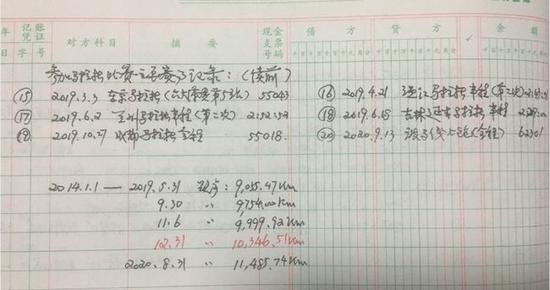 年 记账凭证 对方科目 摘要 现金支票号码 借方 贷方 ✓ 余额
日 字 号
参加马拉松比赛 记录：（续前）
⑮ 2019.3.3 东京马拉松（六大 第5站） 55043 ⑯ 2019.4.21 马拉松半程（第二次）
⑰ 2019.6.2 兰州马拉松半程（第二次） 2:52:52 ⑱ 2019.6.15 吉林 马拉松半程
⑲ 2019.10.27 成都马拉松全程 55018. ⑳ 2020.9.13 线上跑（全程） 62301
2014.1.1 — 2019.5.31 跑步：9,035.47km
9.30 〃 9754.00km
11.6 〃 9,999.92km
12.31 〃 10,346.51km
2020.8.31 〃 11,485.74km